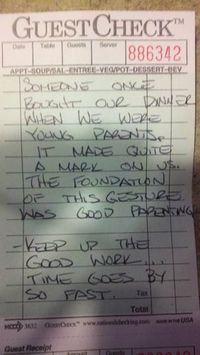 GUESTCHECK™
Date Table Guests Server
886342
APPT-SOUP/SAL-ENTREE-VEG/POT-DESSERT-BEV
SOMEONE ONCE
BOUGHT OUR DINNER
WHEN WE WERE
YOUNG PARENTS.
IT MADE QUITE
A MARK ON US.
THE FOUNDATION
OF THIS GESTURE
WAS GOOD PARENTING
- KEEP UP THE
GOOD WORK....
TIME GOES BY
SO FAST. Tax
Total
3632 GuestCheck™ www.nationalchecking.com MADE IN THE USA
Guest Receipt